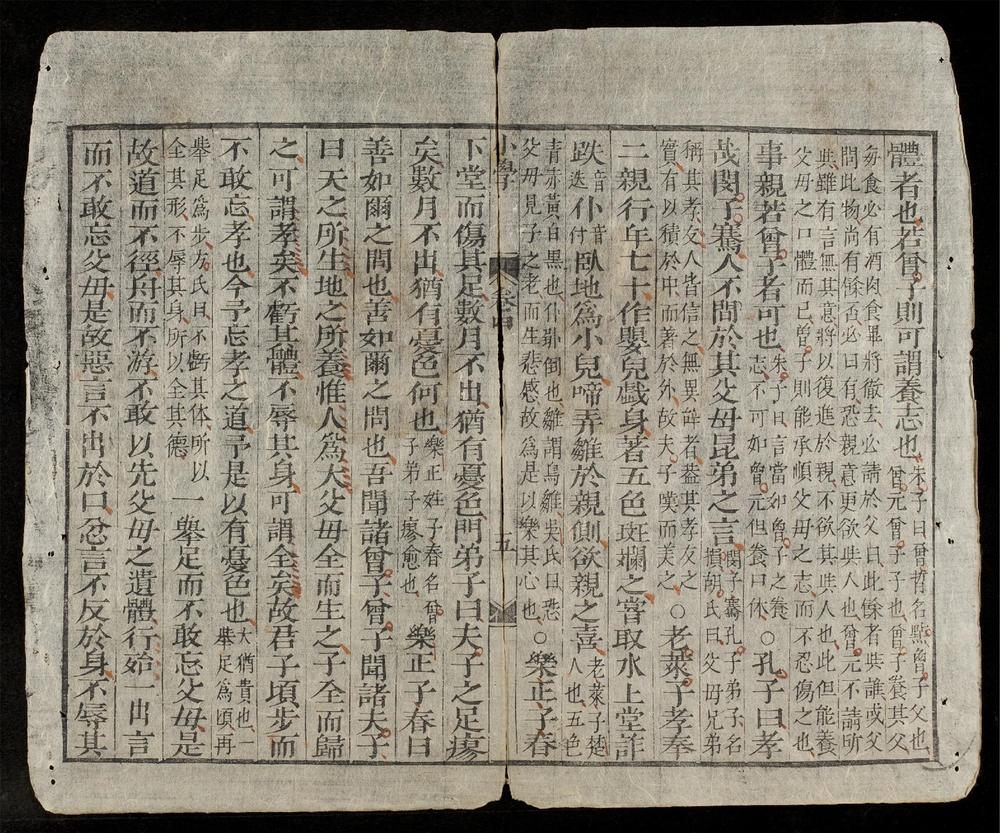 體者也若曾子則可謂養志也
朱子曰曾晳名點曾子父也
曾元曾子子也曾子養其父
每食必有酒肉食畢將徹去必請於父曰此餘者與誰或父
問此物尚有餘否必曰有恐親意更欲與人也曾元不請所
與雖有言無其意將以復進於親不欲其與人也此但能養
父母之口體而已曾子則能承順父母之志而不忍傷之也
事親若曾子者可也
朱子曰言當如曾子之養
志不可如曾元但養口体
○孔子曰孝
哉閔子騫人不間於其父母昆弟之言
閔子騫孔子弟子名
損胡氏曰父母兄弟
稱其孝友人皆信之無異辭者盖其孝友之
實有以積於中而著於外故夫子嘆而美之
○老萊子孝奉
二親行年七十作嬰兒戲身著五色斑斕之嘗取水上堂詐
跌音迭仆音付臥地爲小兒啼弄雛於親側欲親之喜
老萊子楚
人也五色
青赤黃白黑也仆卧倒也雛謂烏雛吳氏曰恐
父母見子之老而生悲感故爲是以樂其心也
○樂正子春
小學 卷四 五
下堂而傷其足數月不出猶有憂色門弟子曰夫子之足瘳
矣數月不出猶有憂色何也
樂正姓子春名曾
子弟子瘳愈也
樂正子春曰
善如爾之問也善如爾之問也吾聞諸曾子曾子聞諸夫子
曰天之所生地之所養惟人爲大父母全而生之子全而歸
之可謂孝矣不虧其體不辱其身可謂全矣故君子頃步而
不敢忘孝也今予忘孝之道予是以有憂色也
大猶貴也一
舉足爲頃再
舉足爲步方氏曰不虧其体所以
全其形不辱其身所以全其德
一舉足而不敢忘父母是
故道而不徑舟而不游不敢以先父母之遺體行殆一出言
而不敢忘父母是故惡言不出於口忿言不反於身不辱其